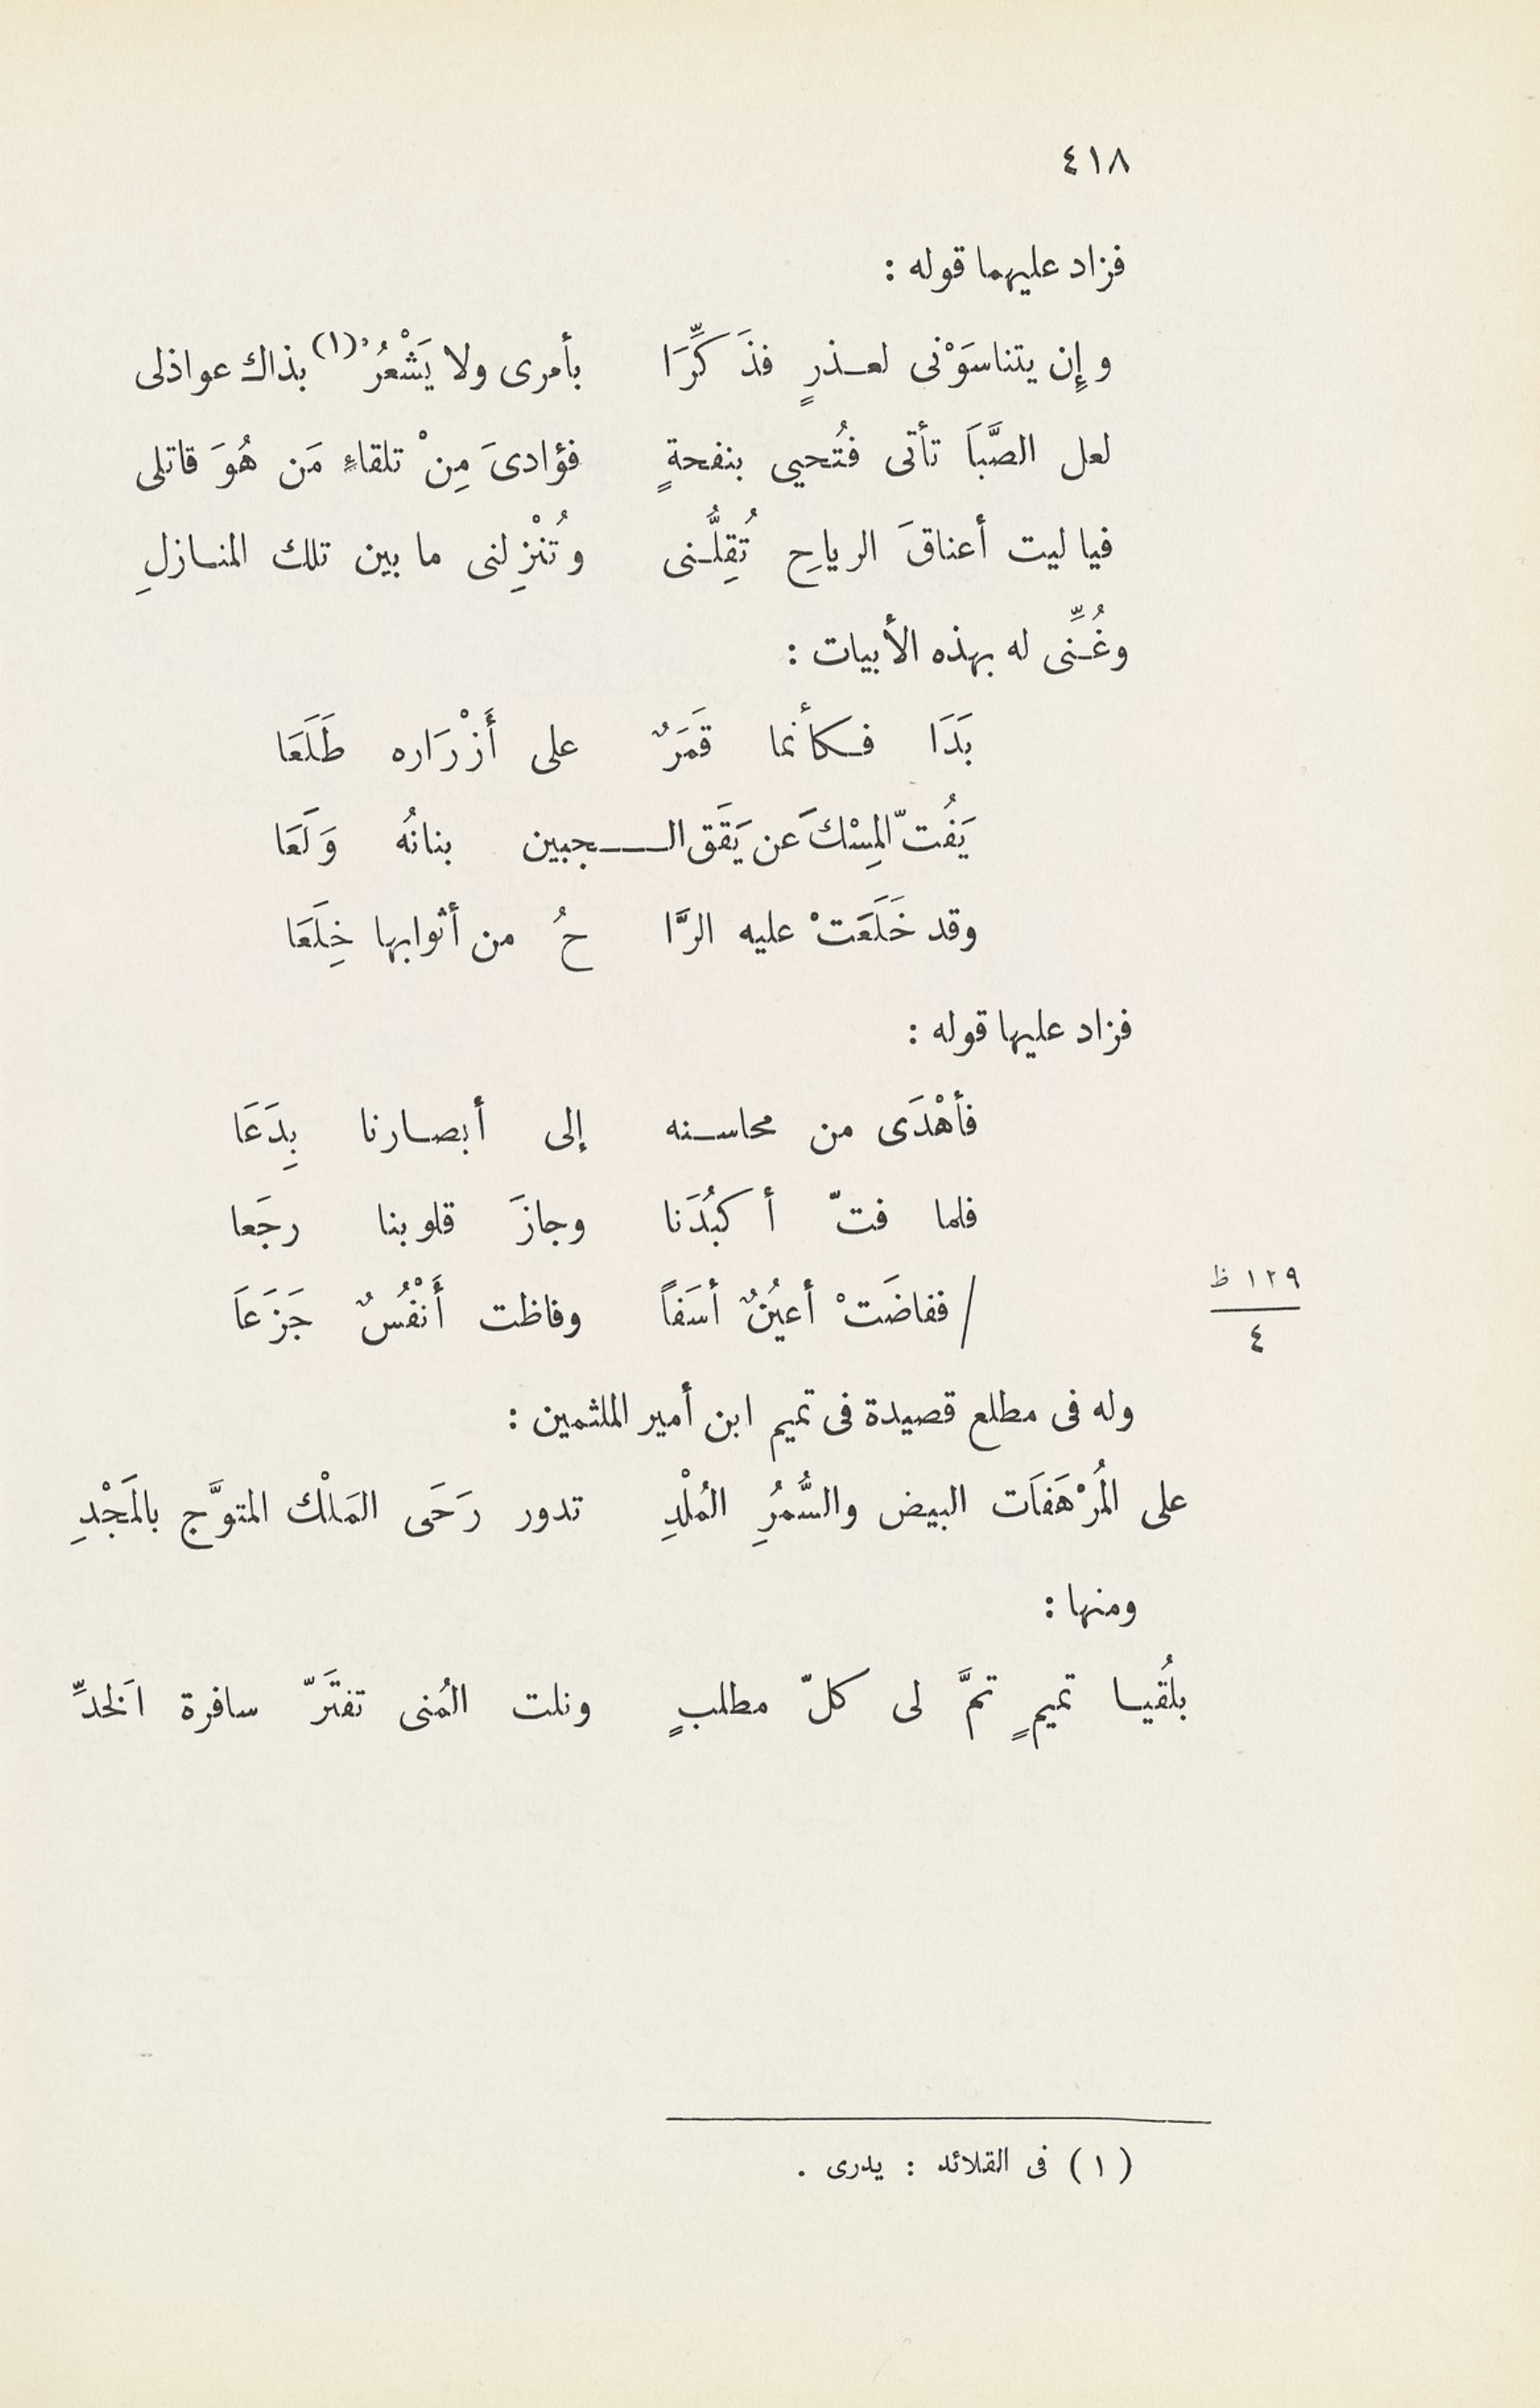 ٤١٨
فزاد عليهما قوله :
وإِن يتناسَوْنى لعـذرٍ فذَكِّرَا بأمرى ولا يَشْعُرْ (١) بذاك عواذلى
لعل الصَّبَا تأتى فتُحيى بنفحةٍ فؤادىَ مِنْ تلقاءِ مَن هُوَ قاتلى
فيا ليت أعناقَ الرياحِ تُقِلُّـنى وتُنْزِلنى ما بين تلك المنـازلِ
وغُـنِّى له بهذه الأبيات :
بَدَا فـكأنما قَمَرٌ على أَزْرَاره طَلَعَا
يَفُتّ المِسْكَ عن يَقَق الـــجبين بنانُه وَلَعَا
وقد خَلَعَتْ عليه الرَّا حُ من أثوابها خِلَعَا
فزاد عليها قوله :
فأهْدَى من محاسـنه إلى أبصـارنا بِدَعَا
فلما فتّ أكبُدَنا وجازَ قلوبنا رجَعا
/ ففاضَتْ أعيُنٌ أسَفاً وفاظت أَنْفُسٌ جَزَعَا
١٢٩ ظ
٤
وله فى مطلع قصيدة فى تميم ابن أمير الملثمين :
على المُرْهَفَات البيض والسُّمرُِ المُلْدِ تدور رَحَى المَلْك المتوَّج بالمَجْدِ
ومنها :
بلُقيـا تميمٍ تمَّ لى كلّ مطلبٍ ونلت المُنى تفتَرّ سافرة الَخدِّ
(١) فى القلائد : يدرى .